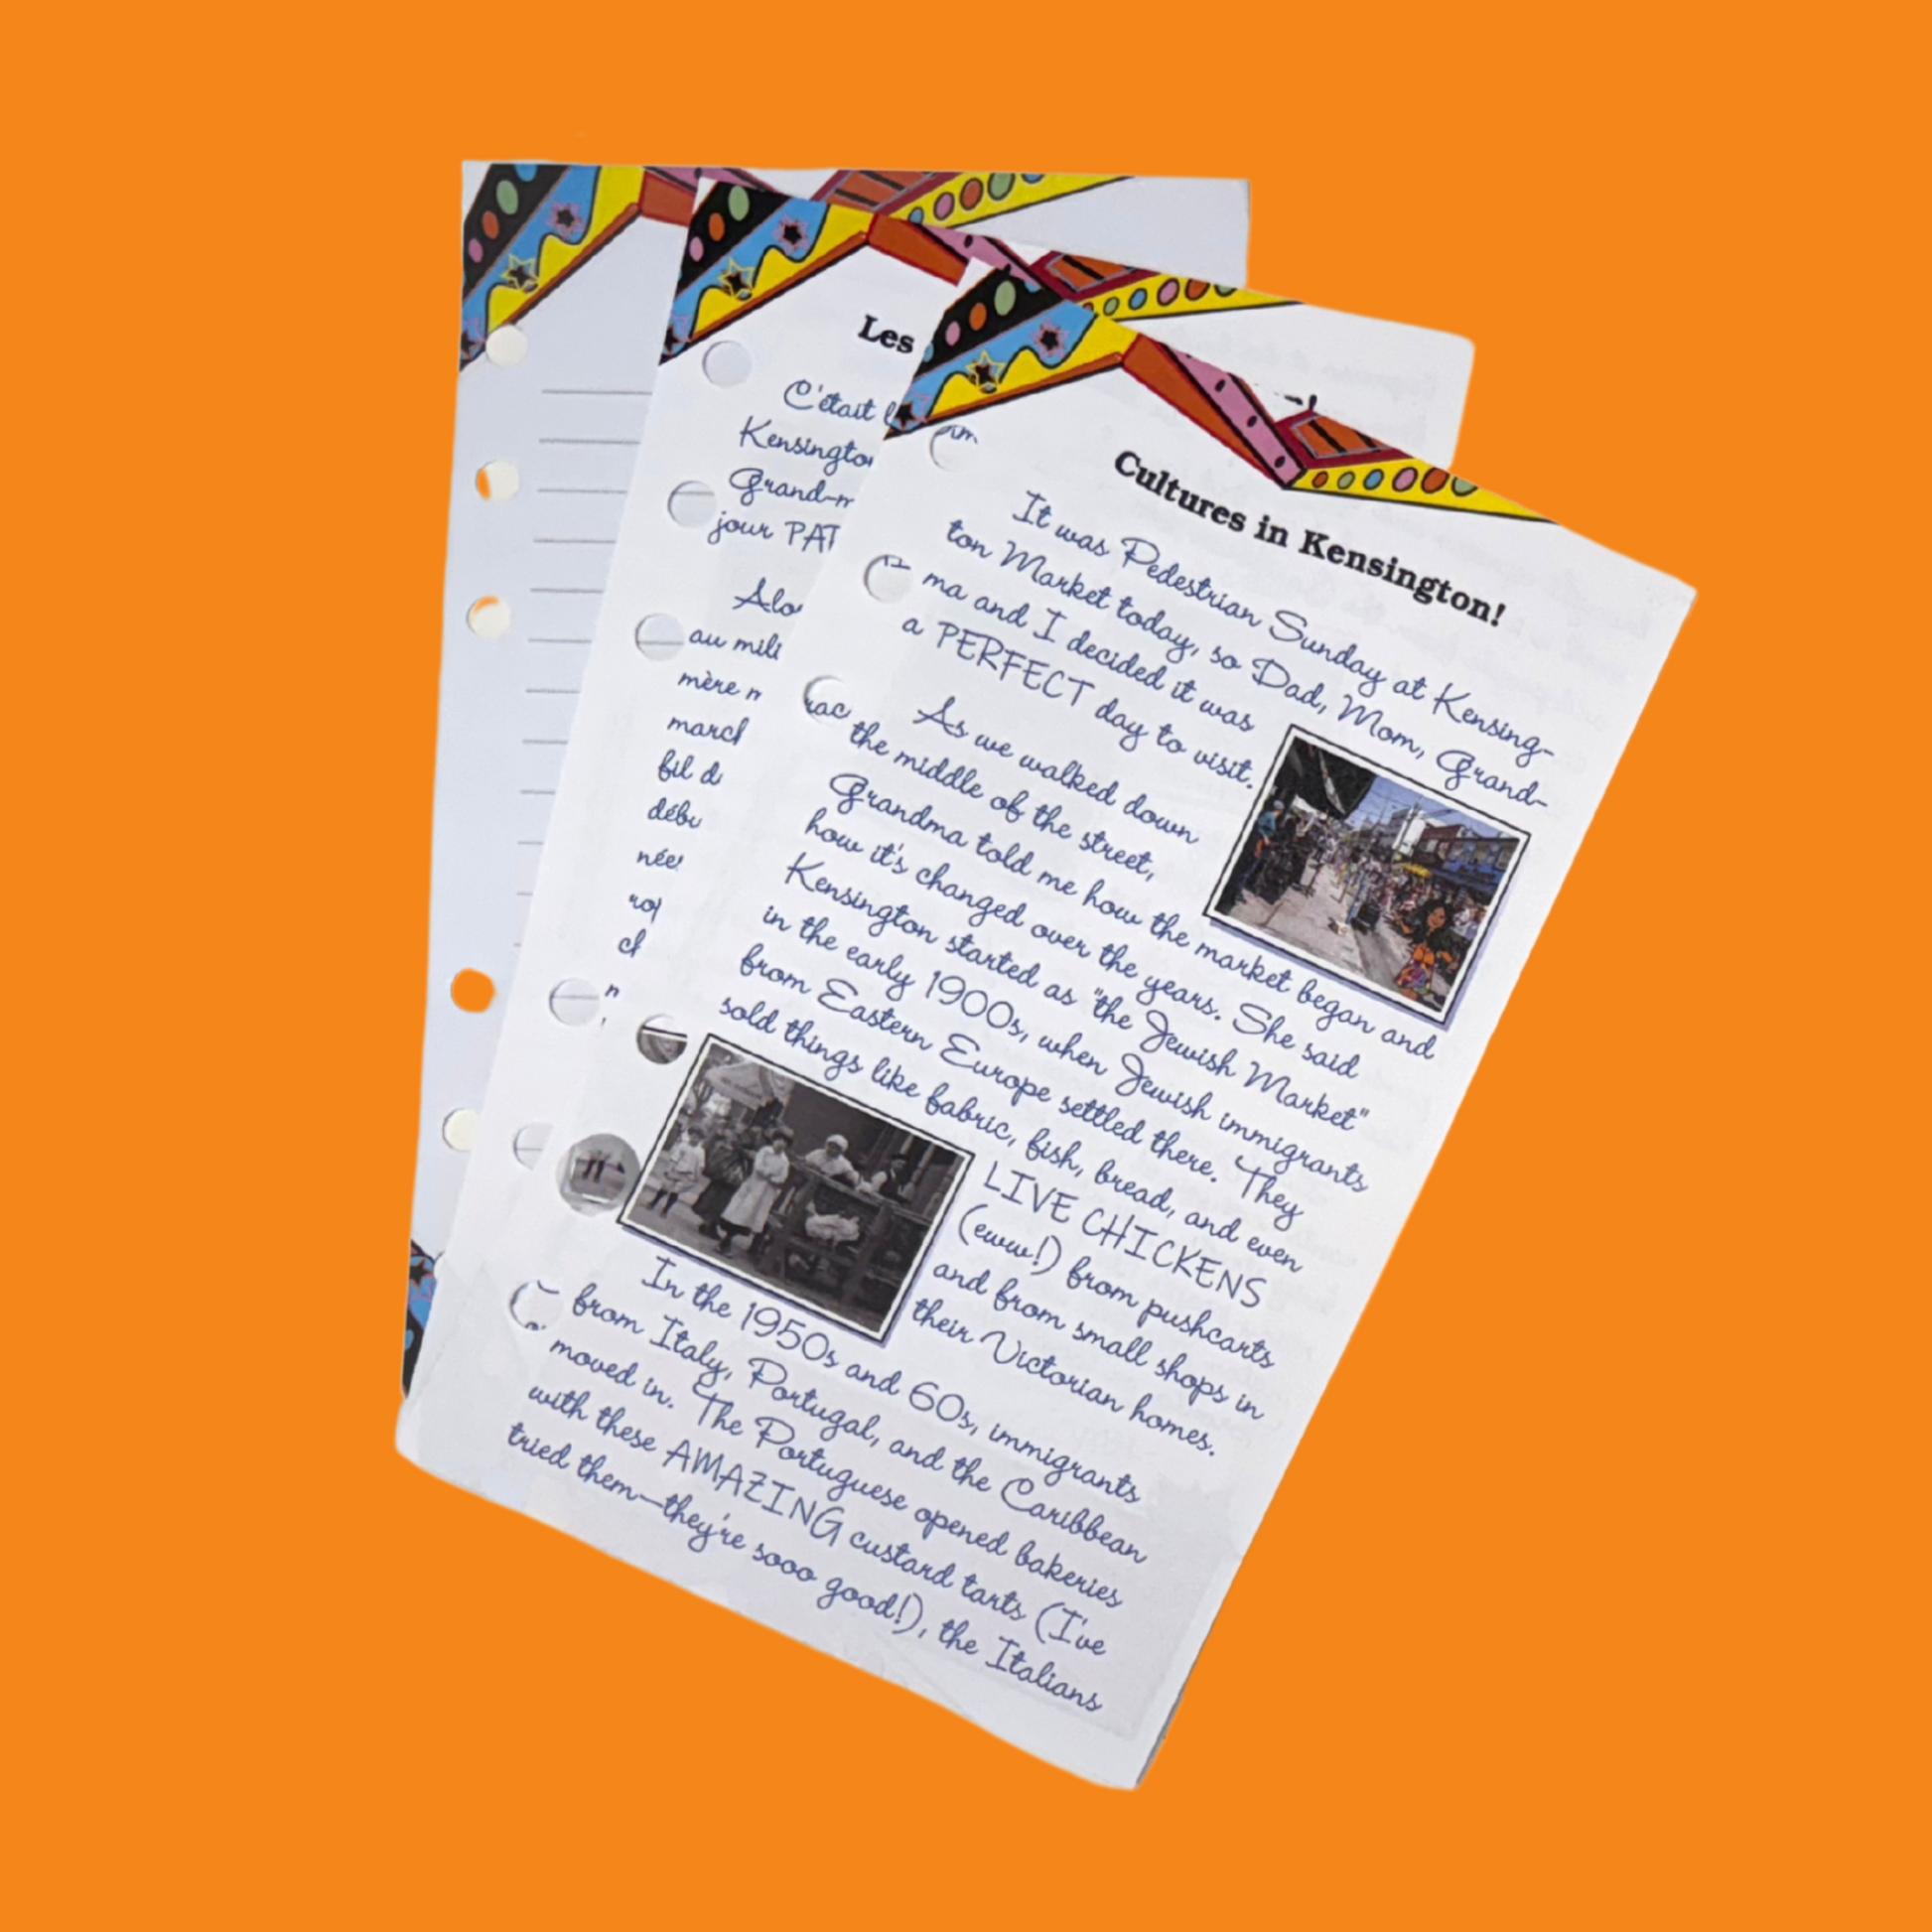 Cultures in Kensington!
It was Pedestrian Sunday at Kensing-
ton Market today, so Dad, Mom, Grand-
ma and I decided it was
a PERFECT day to visit.
As we walked down
the middle of the street,
Grandma told me how the market began and
how it's changed over the years. She said
Kensington started as "the Jewish Market"
in the early 1900s, when Jewish immigrants
from Eastern Europe settled there. They
sold things like fabric, fish, bread, and even
LIVE CHICKENS
(eww!) from pushcarts
and from small shops in
their Victorian homes.
In the 1950s and 60s, immigrants
from Italy, Portugal, and the Caribbean
moved in. The Portuguese opened bakeries
with these AMAZING custard tarts (I've
tried them—they're sooo good!), the Italians
Les
C'était
Kensington
Grand-m
jour PAT
au mili
mère
march
fil d
débu
née